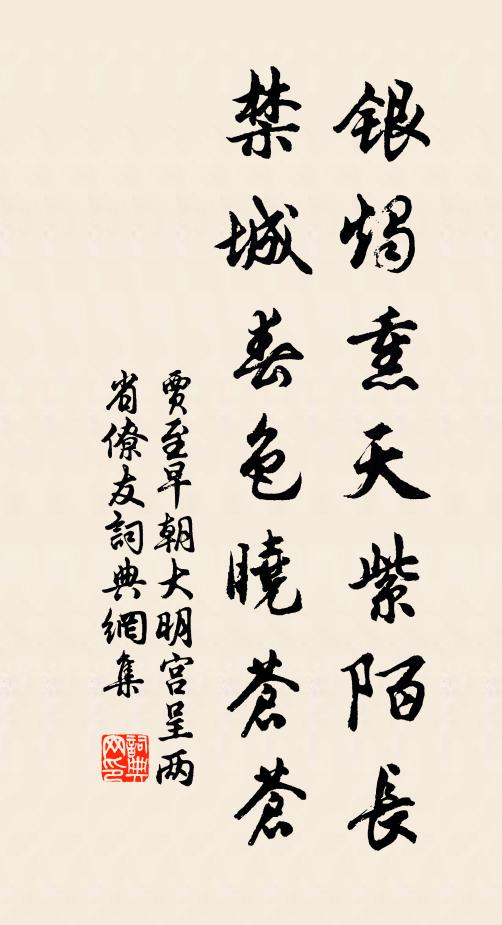 銀燭熏天紫陌長
禁城春色曉蒼蒼
賈至早朝大明宮呈两
省僚友詞典網集
詞典
网印